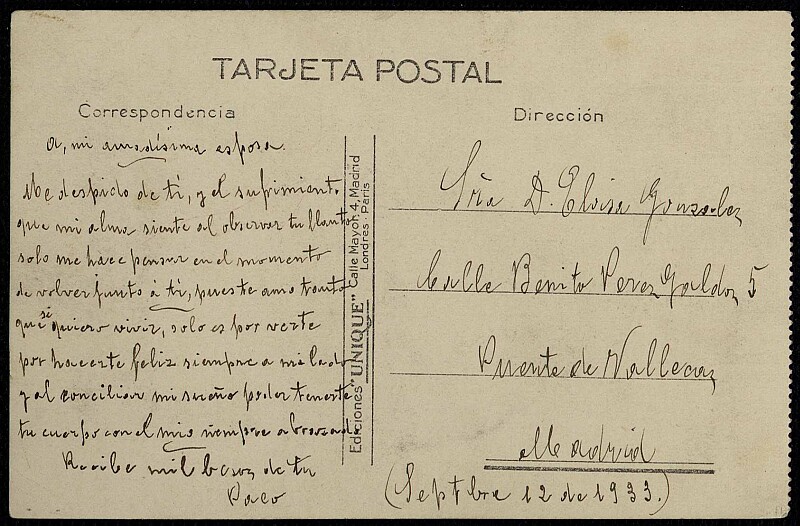 TARJETA POSTAL
Correspondencia
A, mi amadísima esposa.
Me despido de tí, y el sufrimiento
que mi alma siente al observar tu llanto
solo me hace pensar en el momento
de volver junto á tí, pues te amo tanto
que si quiero vivir, solo es por verte
por hacerte feliz siempre a mi lado
y al conciliar mi sueño poder tenerte
tu cuerpo con el mio siempre abrazado
Recibe mil besos de tu
Paco
Ediciones "UNIQUE" Calle Mayor, 4, Madrid
Londres - París
Dirección
Sría D. Eloisa Gonzalez
Calle Benito Perez Galdos 5
Puente de Vallecas
Madrid
(Septbre 12 de 1933.)